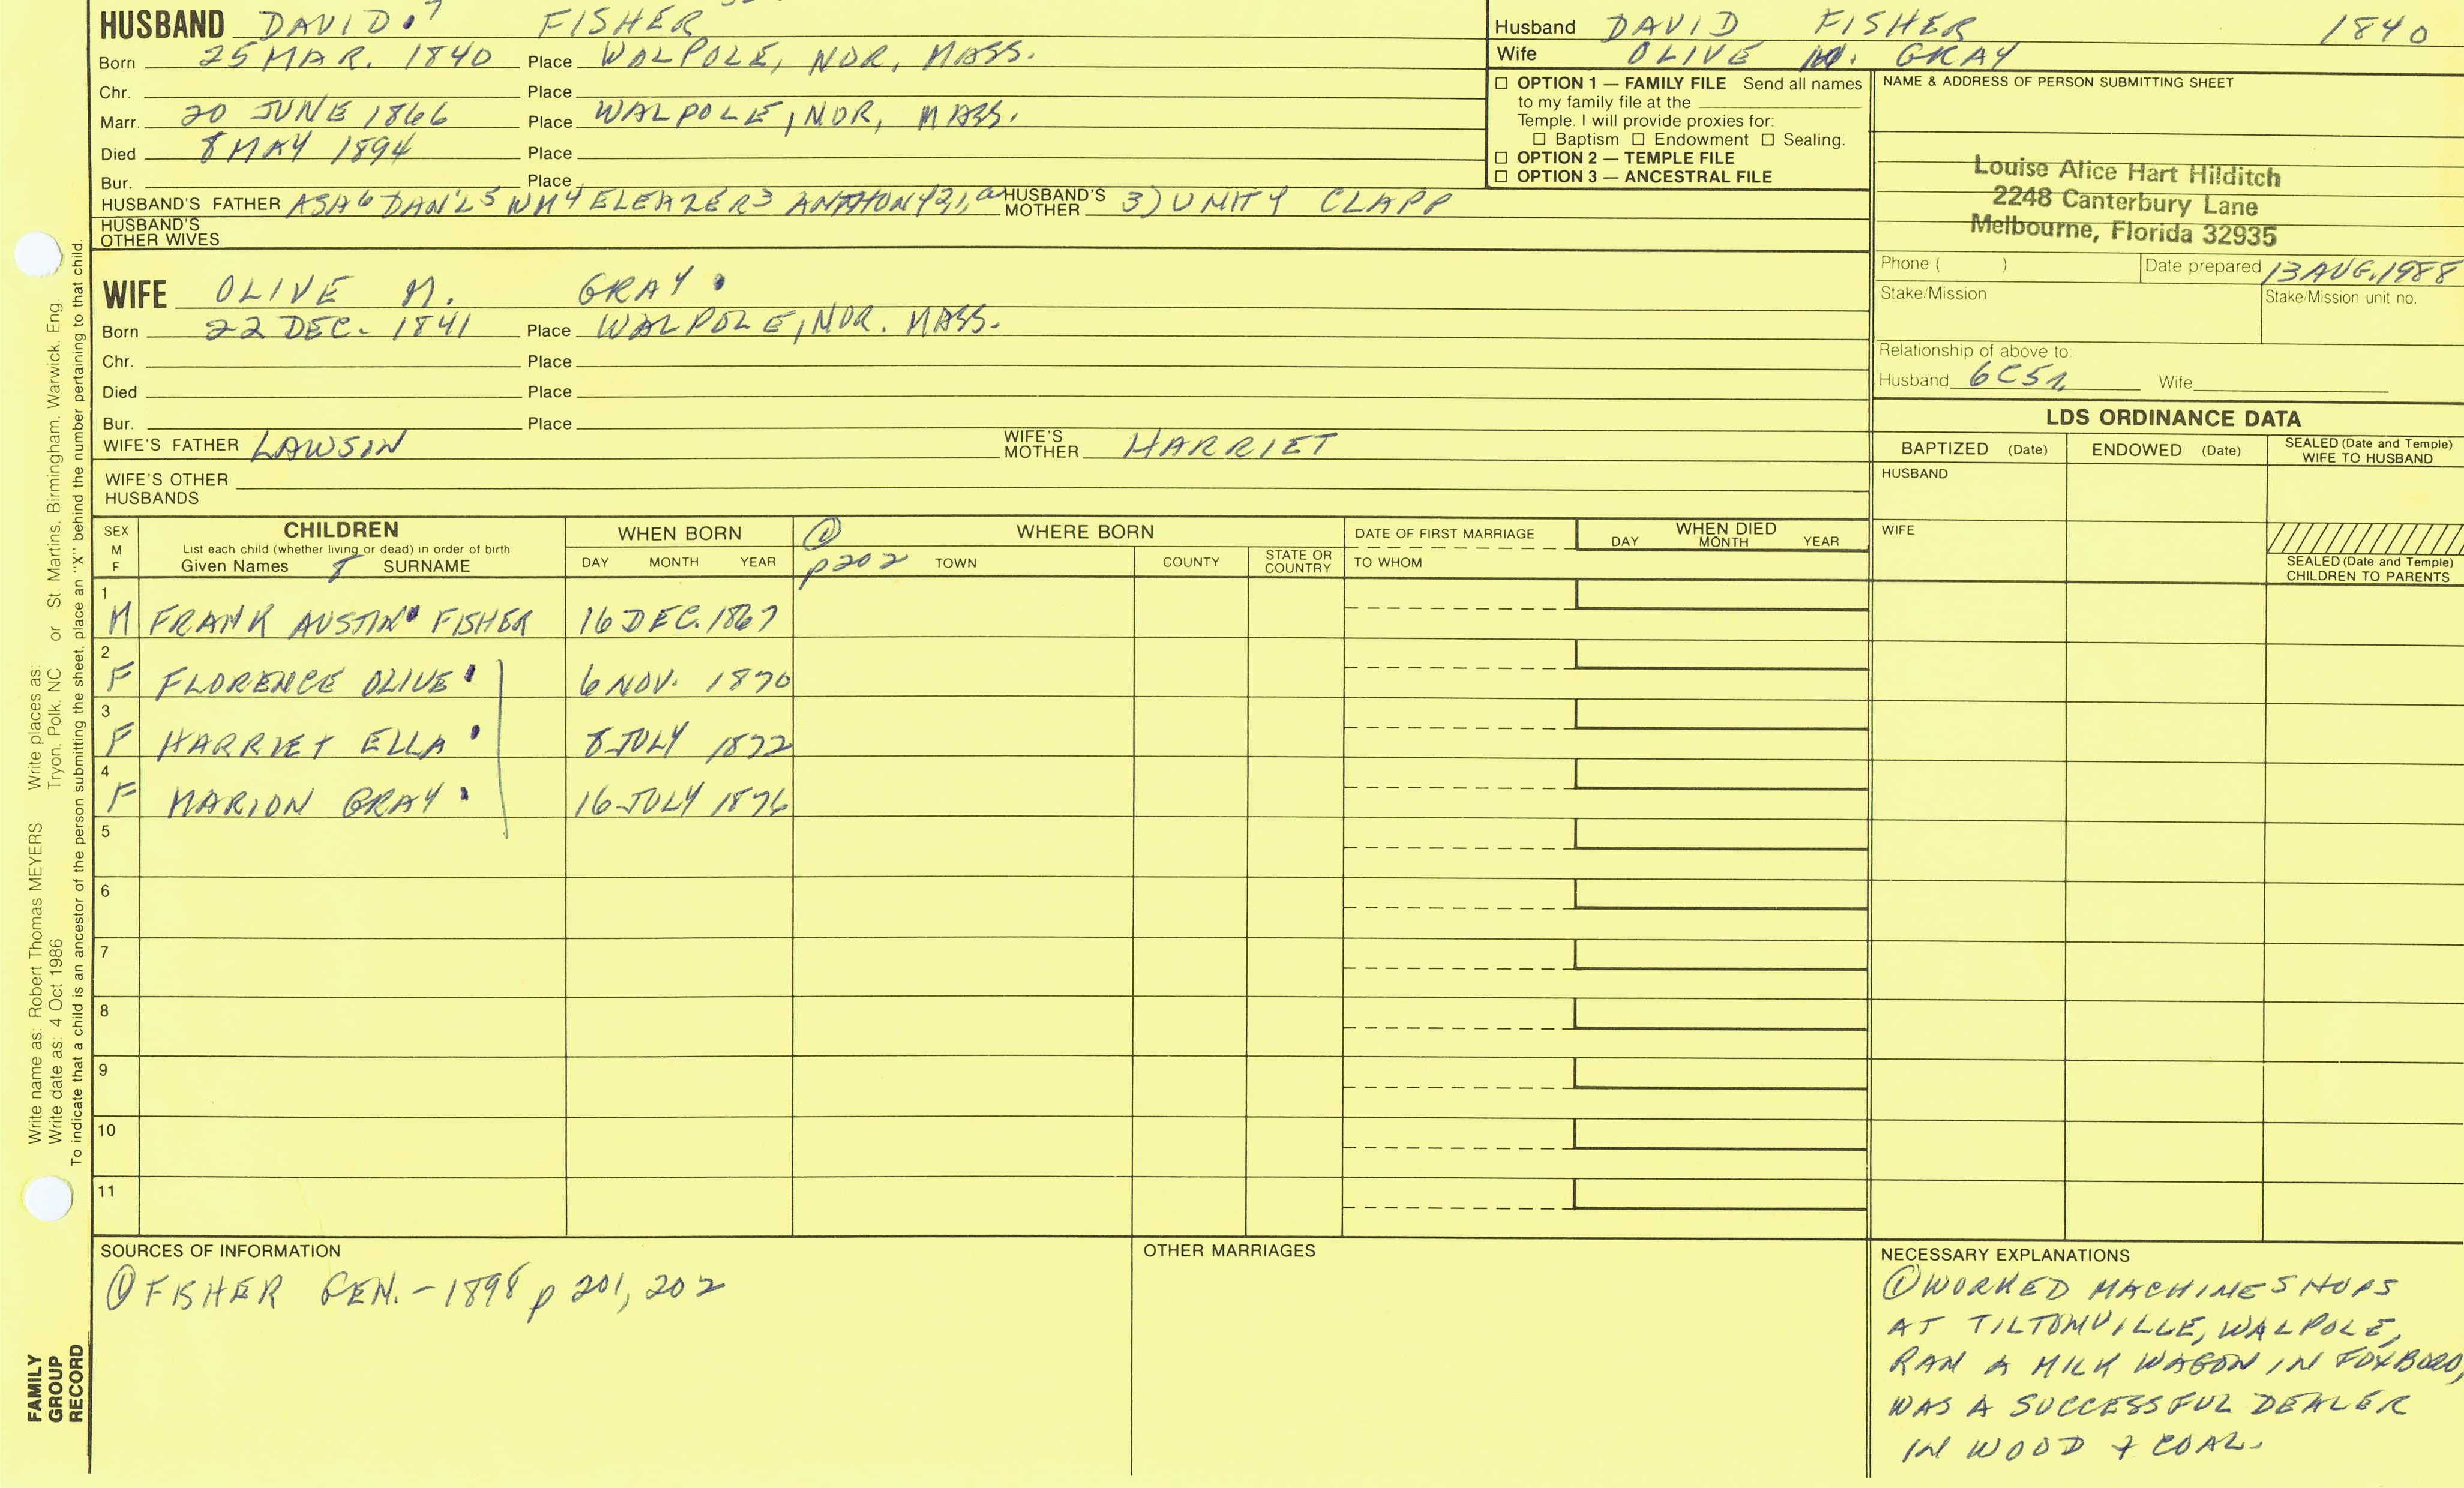 HUSBAND DAVID 7 FISHER
Born 25 MAR. 1840 Place WALPOLE, NOR, MASS.
Chr. Place
Marr. 20 JUNE 1866 Place WALPOLE, NOR, MASS.
Died 8 MAY 1894 Place
Bur. Place
HUSBAND'S FATHER ASA6 DAN'L5 WM4 ELEAZER3 ANTHONY2,1, HUSBAND'S MOTHER 3) UNITY CLAPP
HUSBAND'S OTHER WIVES
Husband DAVID FISHER 1840
Wife OLIVE M. GRAY
☐ OPTION 1 — FAMILY FILE Send all names
to my family file at the
Temple. I will provide proxies for:
☐ Baptism ☐ Endowment ☐ Sealing.
☐ OPTION 2 — TEMPLE FILE
☐ OPTION 3 — ANCESTRAL FILE
NAME & ADDRESS OF PERSON SUBMITTING SHEET
Louise Alice Hart Hilditch
2248 Canterbury Lane
Melbourne, Florida 32935
Phone ( ) Date prepared 13 AUG. 1988
Stake/Mission Stake/Mission unit no.
Relationship of above to:
Husband 6C5R Wife
WIFE OLIVE M. GRAY
Born 22 DEC. 1841 Place WALPOLE, NOR. MASS.
Chr. Place
Died Place
Bur. Place
WIFE'S FATHER LAWSIN WIFE'S MOTHER HARRIET
WIFE'S OTHER
HUSBANDS
LDS ORDINANCE DATA
BAPTIZED (Date) ENDOWED (Date) SEALED (Date and Temple) WIFE TO HUSBAND
HUSBAND
WIFE
SEALED (Date and Temple)
CHILDREN TO PARENTS
SEX M F
CHILDREN
List each child (whether living or dead) in order of birth
Given Names 8 SURNAME
WHEN BORN
DAY MONTH YEAR
① p 202
WHERE BORN
TOWN COUNTY STATE OR COUNTRY
DATE OF FIRST MARRIAGE
TO WHOM
WHEN DIED
DAY MONTH YEAR
1 M FRANK AUSTIN FISHER 16 DEC. 1867
2 F FLORENCE OLIVE 6 NOV. 1870
3 F HARRIET ELLA 8 JULY 1872
4 F MARION GRAY 16 JULY 1876
5
6
7
8
9
10
11
SOURCES OF INFORMATION
① FISHER GEN. - 1898 p 201, 202
OTHER MARRIAGES
NECESSARY EXPLANATIONS
① WORKED MACHINE SHOPS
AT TILTONVILLE, WALPOLE,
RAN A MILK WAGON IN FOXBORO,
WAS A SUCCESSFUL DEALER
IN WOOD & COAL.
Write name as: Robert Thomas MEYERS Write places as:
Write date as: 4 Oct 1986 Tryon, Polk, NC or St. Martins, Birmingham, Warwick, Eng
To indicate that a child is an ancestor of the person submitting the sheet, place an "X" behind the number pertaining to that child.
FAMILY
GROUP
RECORD